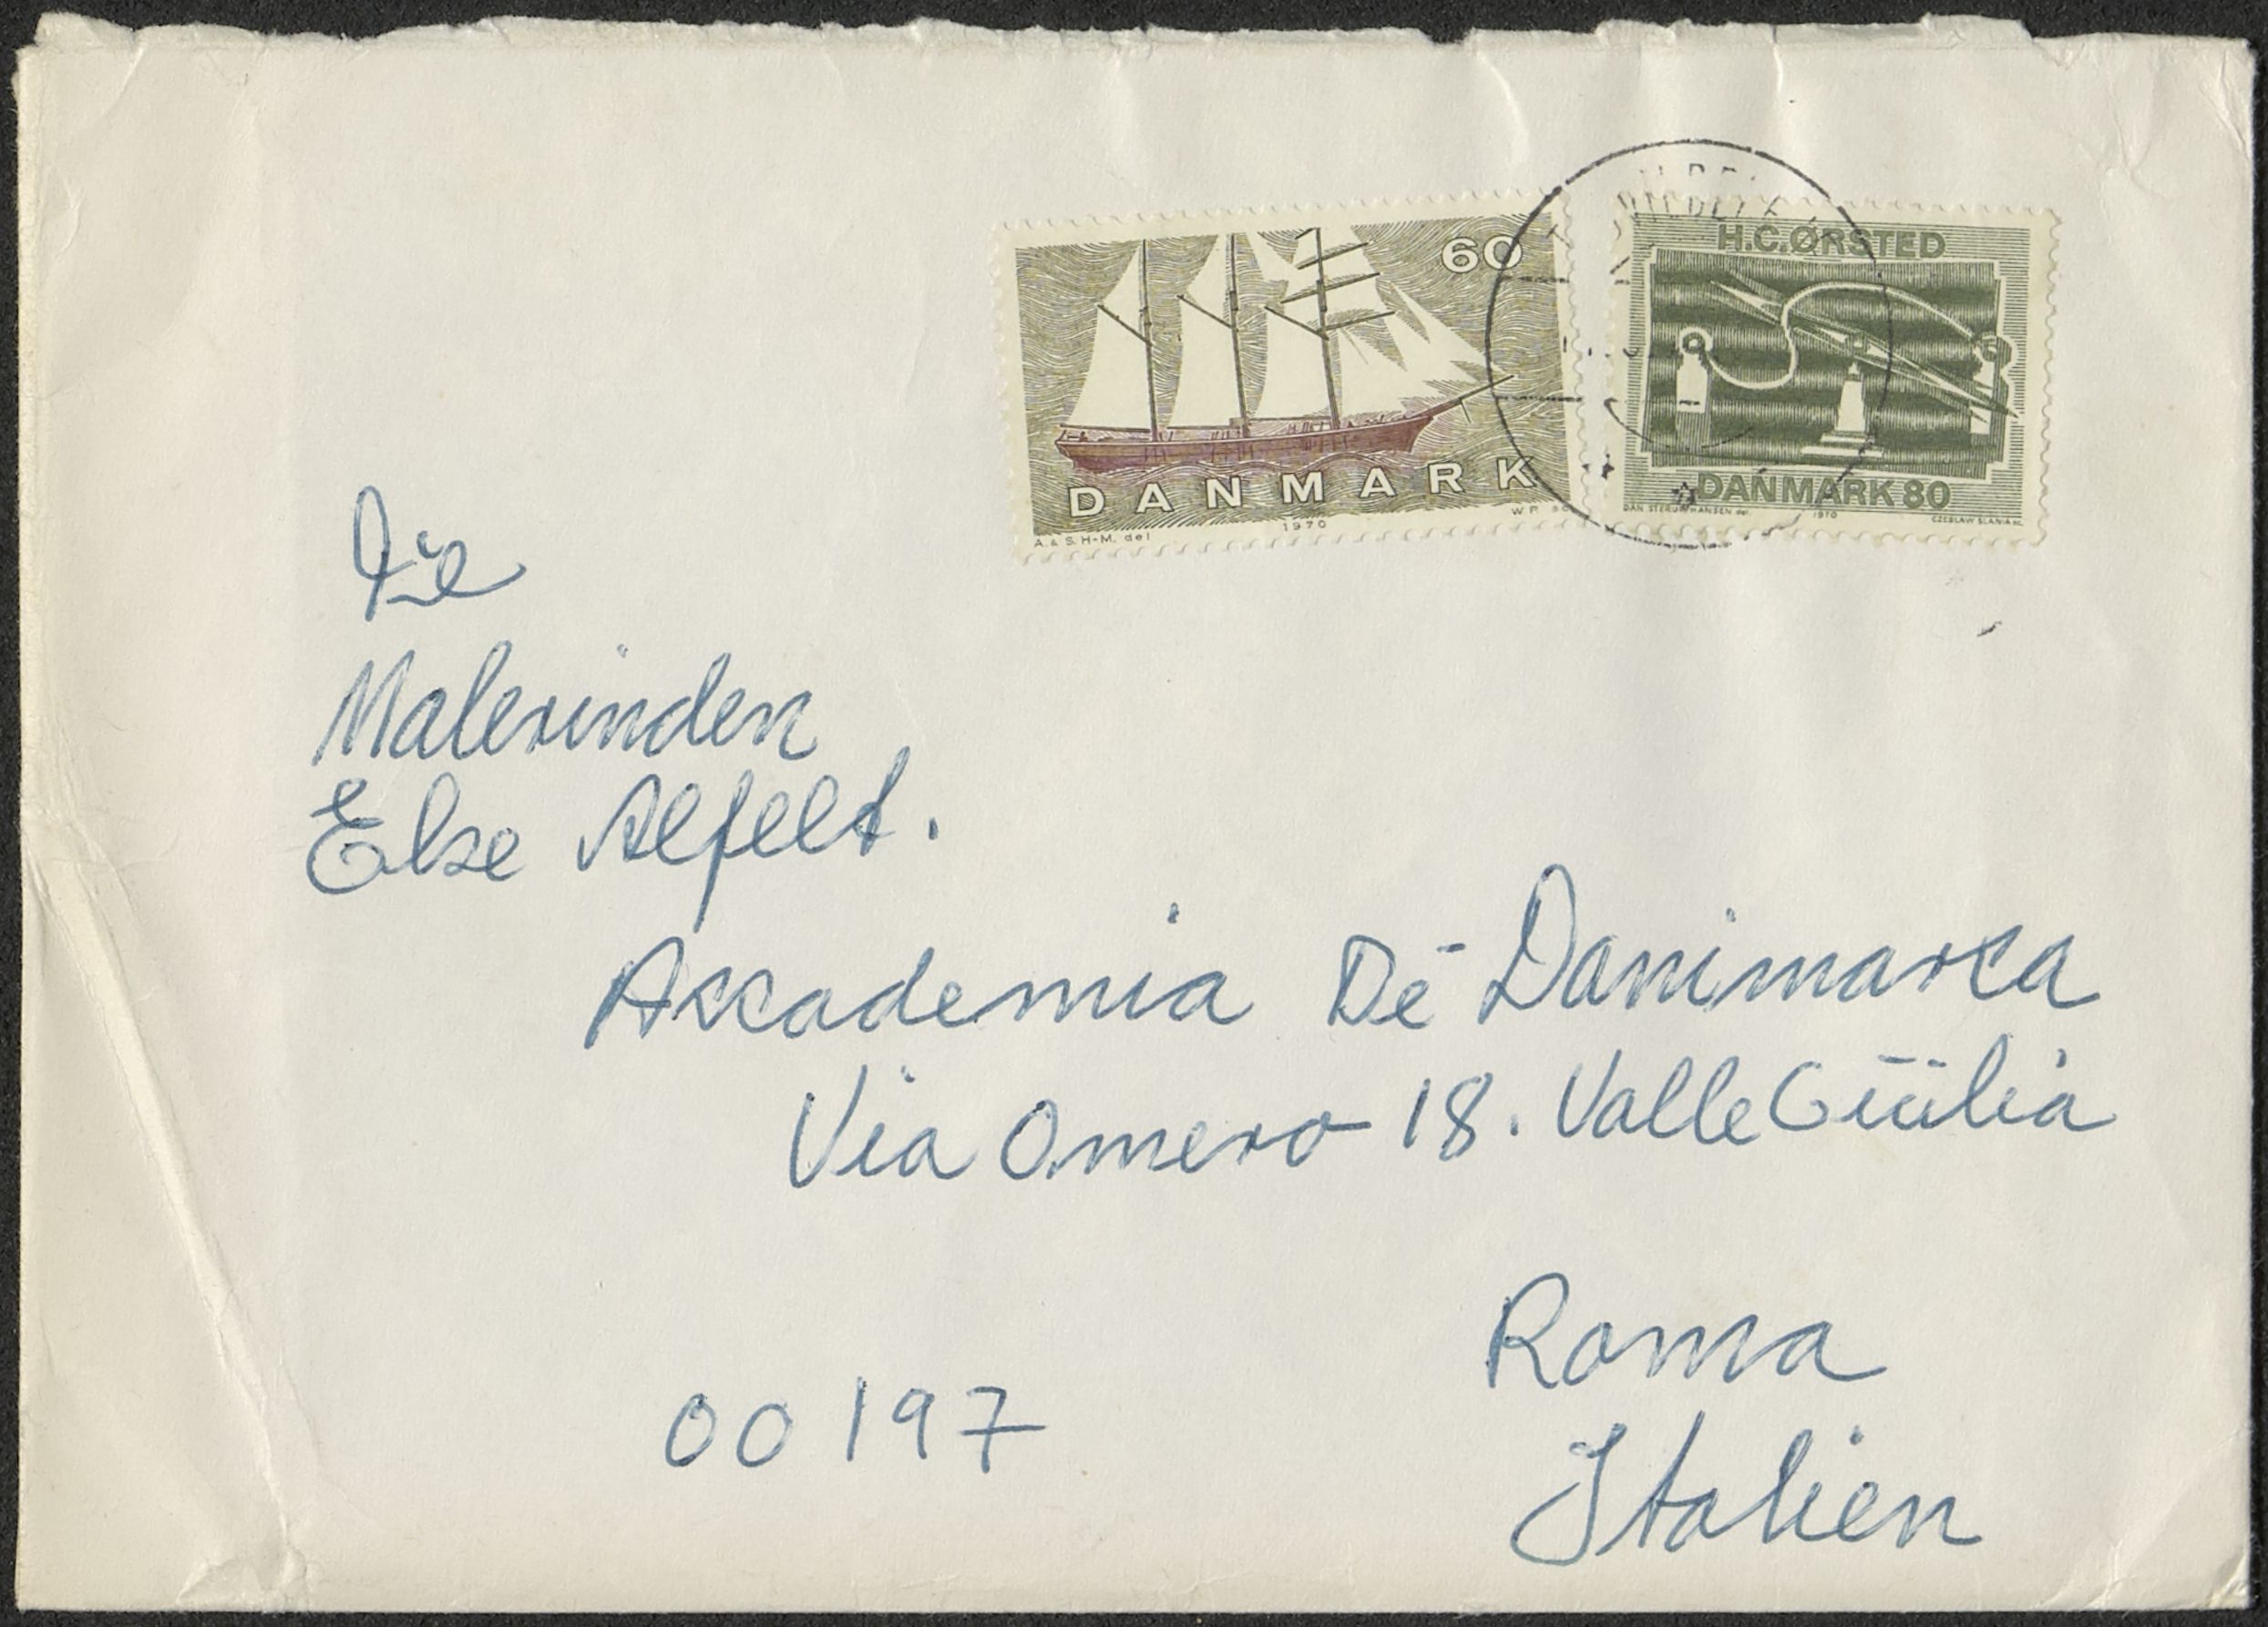 60
DANMARK
1970
A. & S. H-M. del
H.C. ØRSTED
DANMARK 80
DAN STERUP-HANSEN del.
1970
CZESLAW SLANIA sc.
Malerinden
Else Alfelt.
Accademia Dē Danimarca
Via Omero 18. Valle Giülia
Roma
00197
Italien